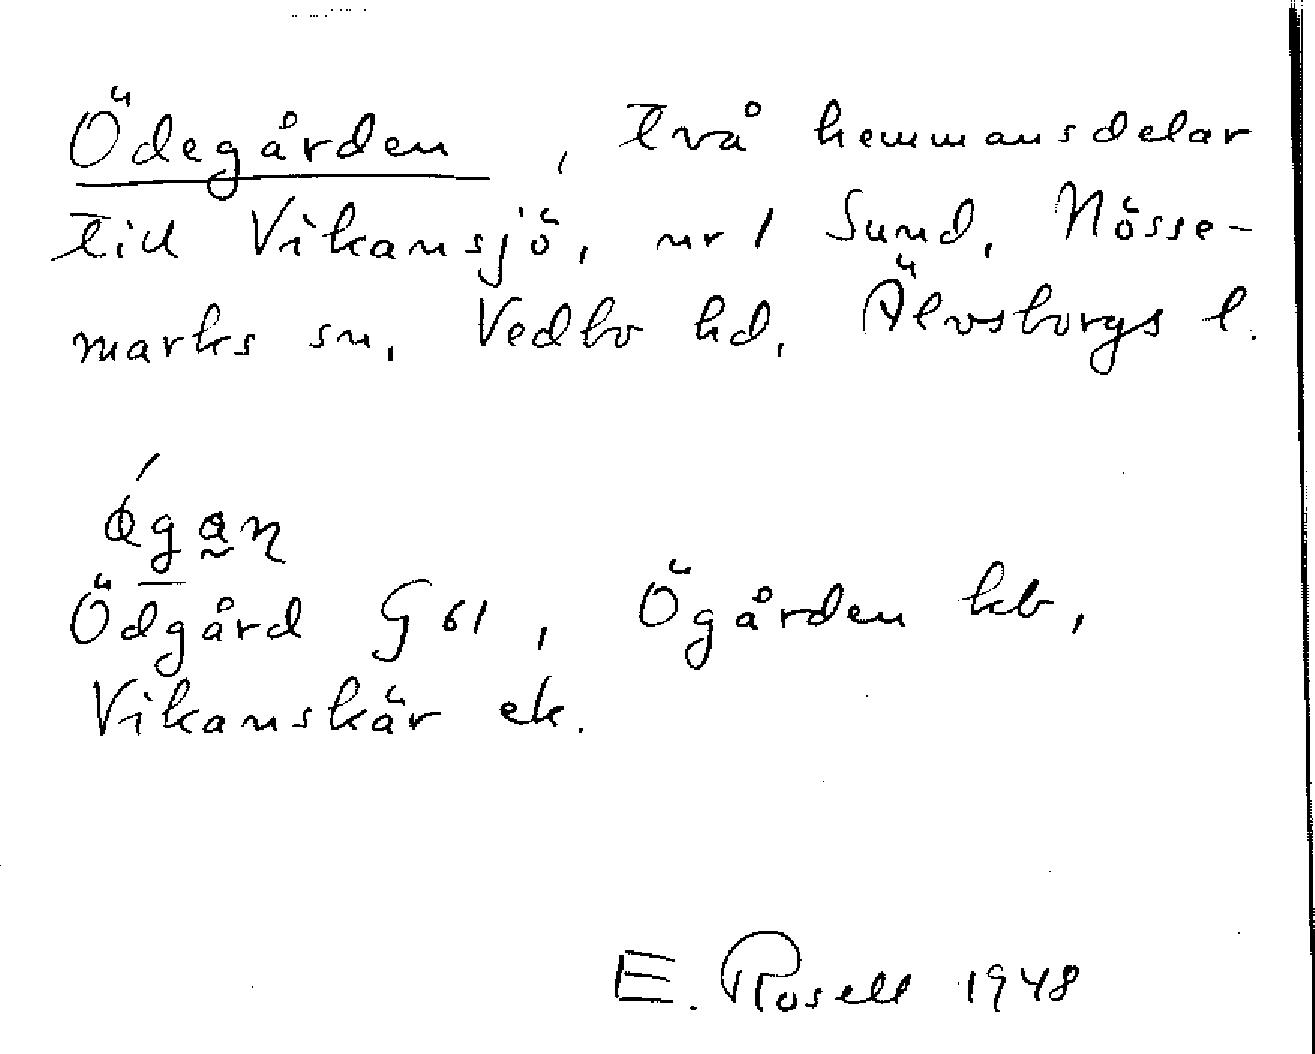 Ödegården, två hemmansdelar
till Vikansjö, nr 1 Sund, Nösse-
marks sn, Vedbo hd, Älvsborgs l.
Ödgård G 61, Ögården kb,
Vikanskär ek.
E. Rosell 1948